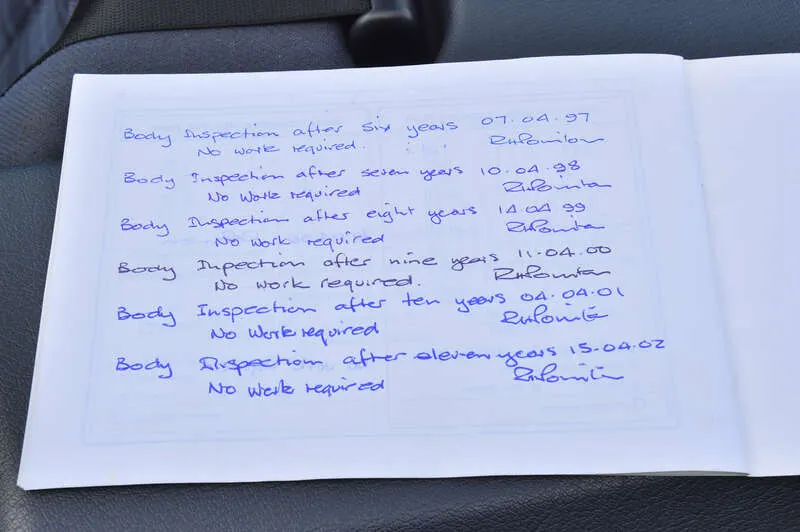 Body Inspection after six years 07.04.97
No work required.
Body Inspection after seven years 10.04.98
No Work required
Body Inspection after eight years 14.04.99
No Work required
Body Inpection after nine years 11.04.00
No work required.
Body Inspection after ten years 04.04.01
No Work required
Body Inspection after eleven years 15.04.02
No Work required